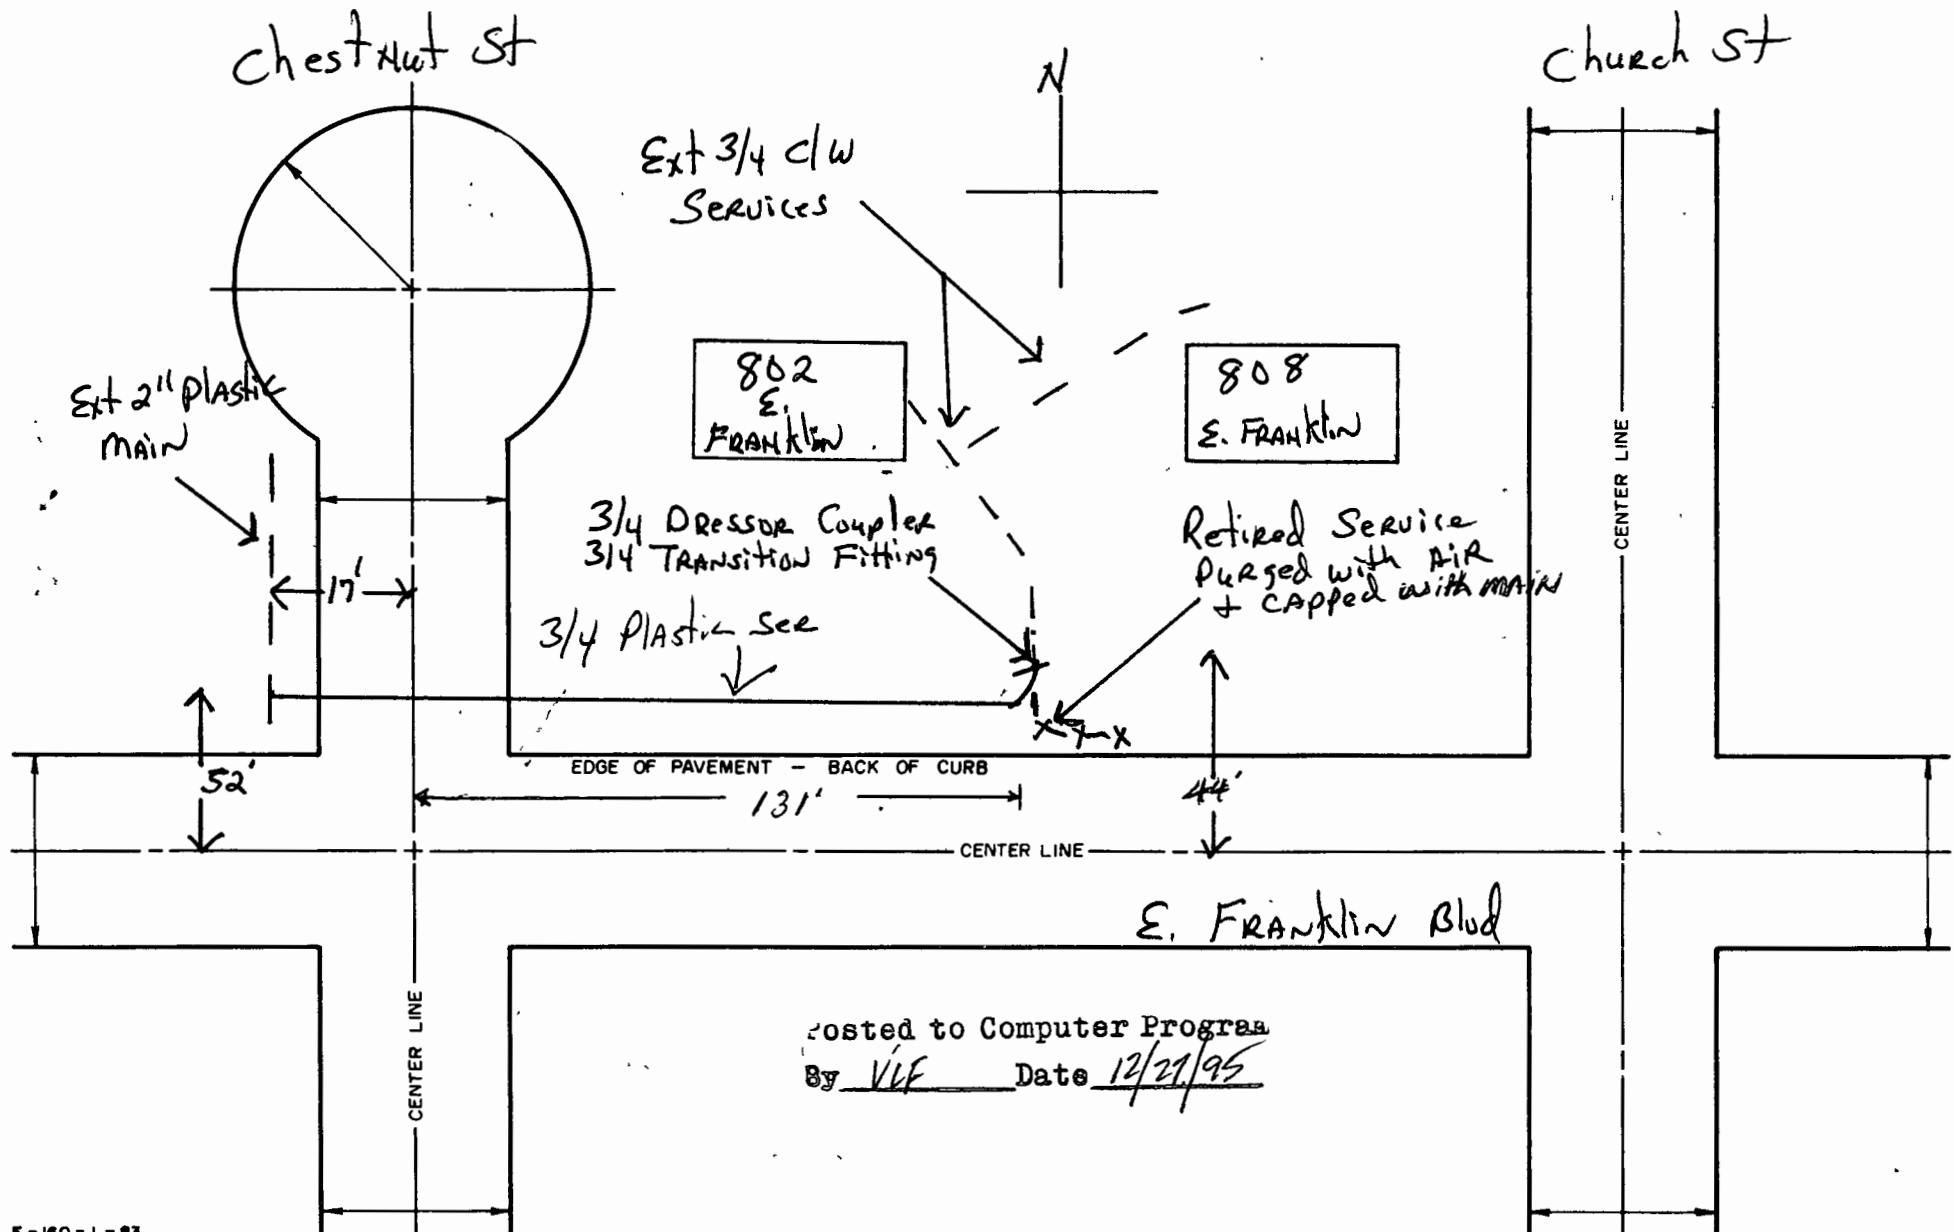 Chestnut St
Church St
N
Ext 3/4 c/w
Services
802
E.
Franklin
808
E. Franklin
Ext 2" Plastic
Main
3/4 Dressor Coupler
3/4 Transition Fitting
Retired Service
Purged with Air
+ capped with main
17'
3/4 Plastic Ser
CENTER LINE
52'
EDGE OF PAVEMENT - BACK OF CURB
131'
44'
CENTER LINE
E. Franklin Blvd
CENTER LINE
Posted to Computer Program
By Date 12/27/95